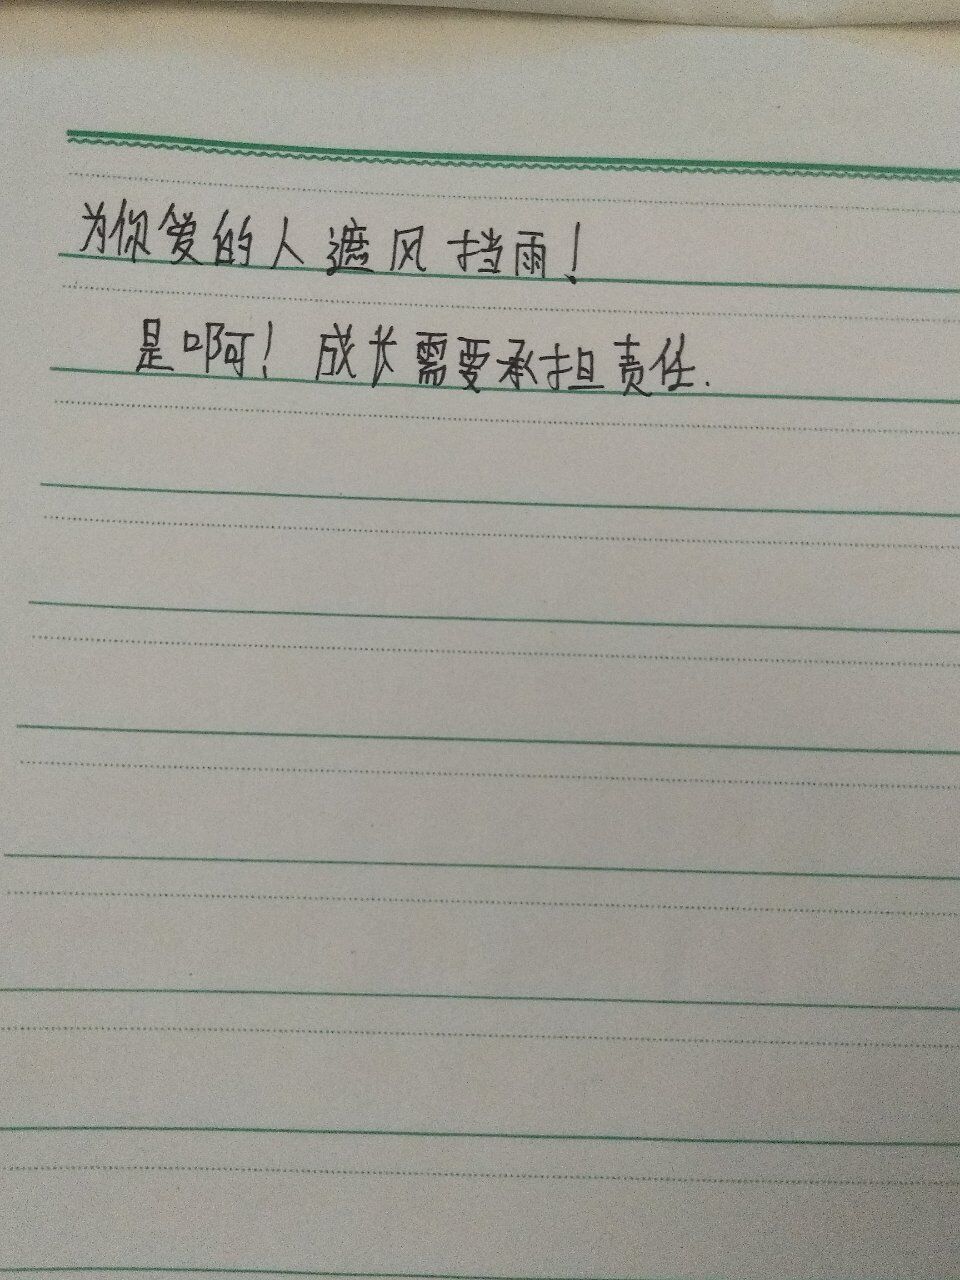 为你爱的人遮风挡雨！
是啊！成长需要承担责任.